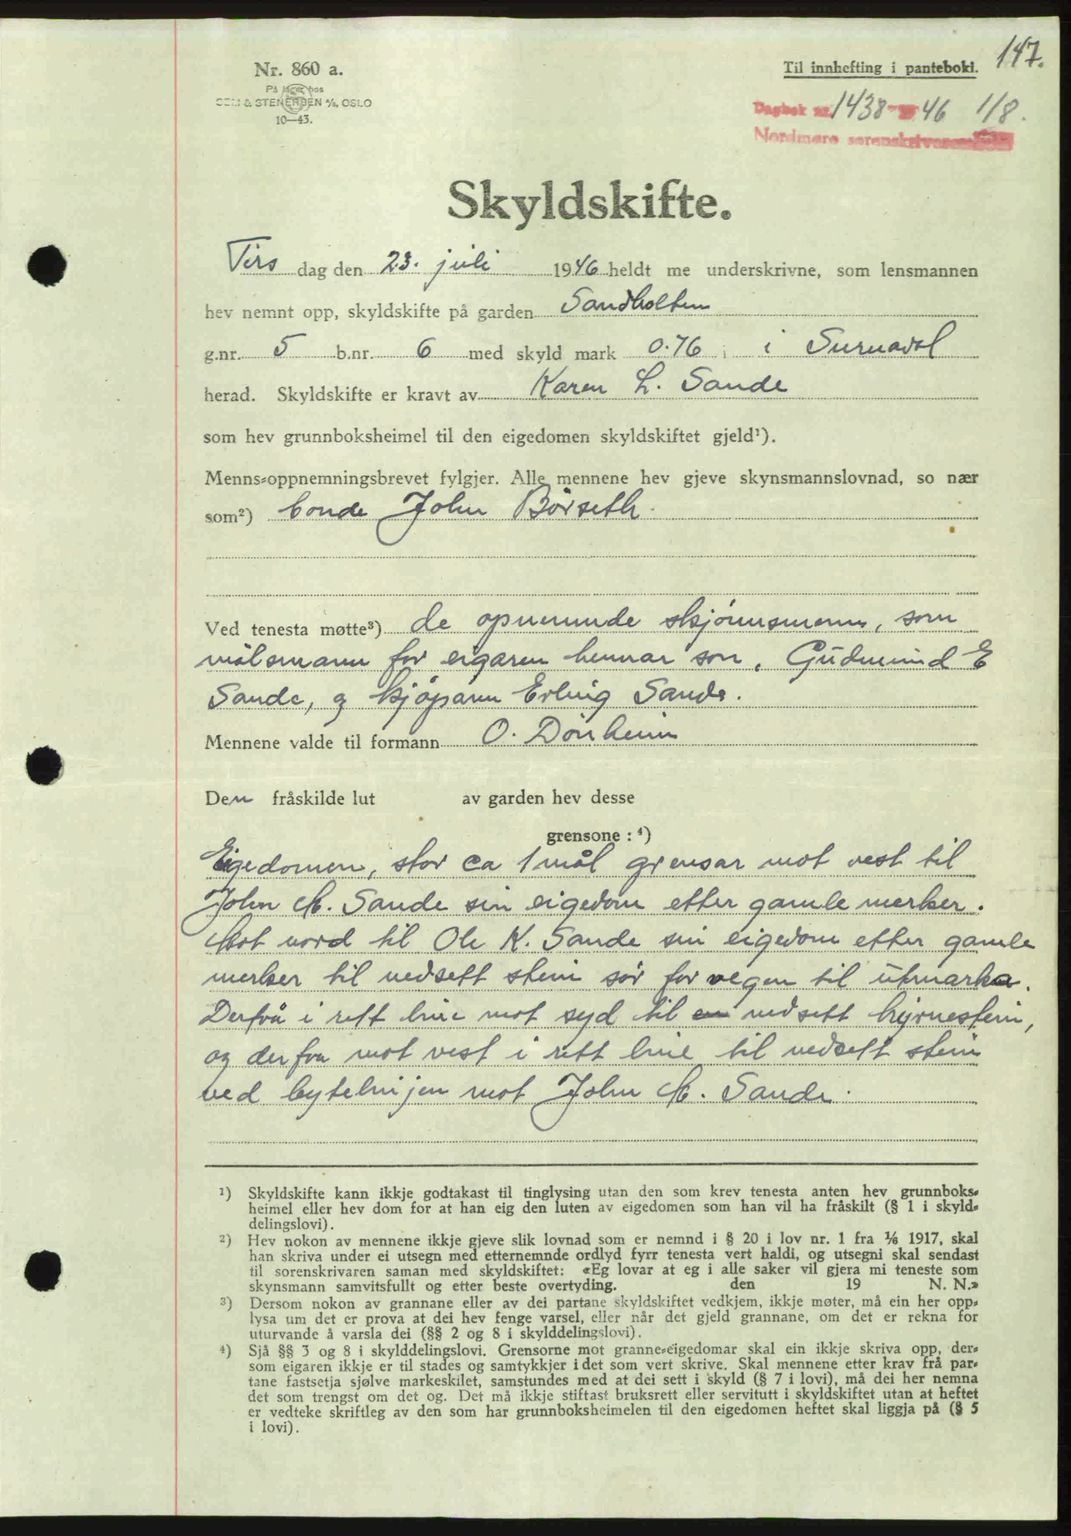 147.
Nr. 860 a.
På lager hos
SEM & STENERSEN A/S, OSLO
10—43.
Til innhefting i panteboki.
Dagbok nr. 1438 - 46 1/8.
Nordmøre sorenskrivarembæte
Skyldskifte.
Tirs dag den 23. juli 1946 heldt me underskrivne, som lensmannen
hev nemnt opp, skyldskifte på garden Sandholten
g.nr. 5 b.nr. 6 med skyld mark 0.76 i Surnadal
herad. Skyldskifte er kravt av Karen L. Sande
som hev grunnboksheimel til den eigedomen skyldskiftet gjeld¹).
Menns-oppnemningsbrevet fylgjer. Alle mennene hev gjeve skynsmannslovnad, so nær
som²) bonde John Børseth.
Ved tenesta møtte³) de opnemnde skjønnsmenn, som
målsmann for eigaren hennar son, Gudmund E
Sande, og kjøparen Erling Sande.
Mennene valde til formann O. Dønheim
Den fråskilde lut av garden hev desse
grensone : ⁴)
Eigedomen, stor ca 1 mål grensar mot vest til
John M. Sande sin eigedom etter gamle merker.
Mot nord til Ole K. Sande sin eigedom etter gamle
merker til nedsett stein sør for vegen til utmarka.
Derfrå i rett line mot syd til en nedsett hjørnestein,
og derfra mot vest i rett line til nedsett stein
ved bytelinjen mot John M. Sande.
¹) Skyldskifte kann ikkje godtakast til tinglysing utan den som krev tenesta anten hev grunnboks-
heimel eller hev dom for at han eig den luten av eigedomen som han vil ha fråskilt (§ 1 i skyld-
delingslovi).
²) Hev nokon av mennene ikkje gjeve slik lovnad som er nemnd i § 20 i lov nr. 1 fra 1/6 1917, skal
han skriva under ei utsegn med etternemnde ordlyd fyrr tenesta vert haldi, og utsegni skal sendast
til sorenskrivaren saman med skyldskiftet: «Eg lovar at eg i alle saker vil gjera mi teneste som
skynsmann samvitsfullt og etter beste overtyding. den 19 N. N.»
³) Dersom nokon av grannane eller av dei partane skyldskiftet vedkjem, ikkje møter, må ein her opp-
lysa um det er prova at dei hev fenge varsel, eller når det gjeld grannane, om det er rekna for
uturvande å varsla dei (§§ 2 og 8 i skylddelingslovi).
⁴) Sjå §§ 3 og 8 i skylddelingslovi. Grensorne mot granne-eigedomar skal ein ikkje skriva opp, der-
som eigaren ikkje er til stades og samtykkjer i det som vert skrive. Skal mennene etter krav frå par-
tane fastsetja sjølve markeskilet, samstundes med at dei sett i skyld (§ 7 i lovi), må dei her nemna
det som trengst om det og. Det må ikkje stiftast bruksrett eller servitutt i skyldskiftet utan at heftet
er vedteke skriftleg av den som har grunnboksheimelen til den eigedomen heftet skal liggja på (§ 5
i lovi).